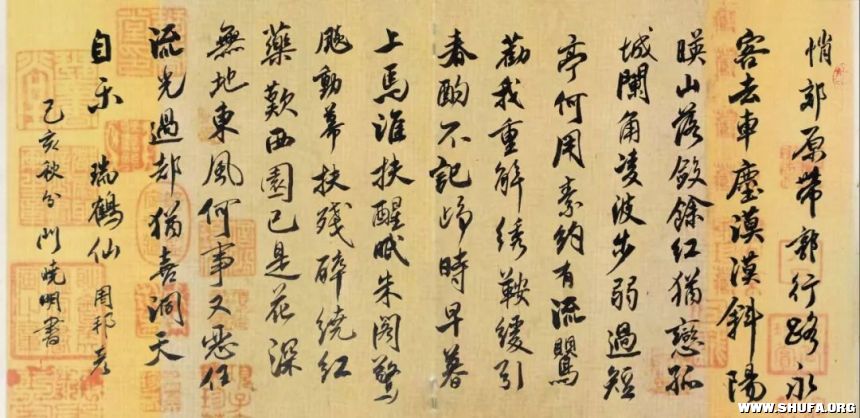 悄郊原帶郭行路永
客去車塵漠漠斜陽
暎山落斂餘紅猶戀孤
城闌角凌波步弱過短
亭何用素約有流鶯
勸我重解綉鞍緩引
春酌不記歸時早暮
上馬誰扶醒眠朱閣驚
飈動幕扶殘醉繞紅
藥歎西園已是花深
無地東風何事又惡任
流光過却猶喜洞天
自樂 瑞鶴仙 周邦彥
己亥秋分門曉明書
WWW.SHUFA.ORG